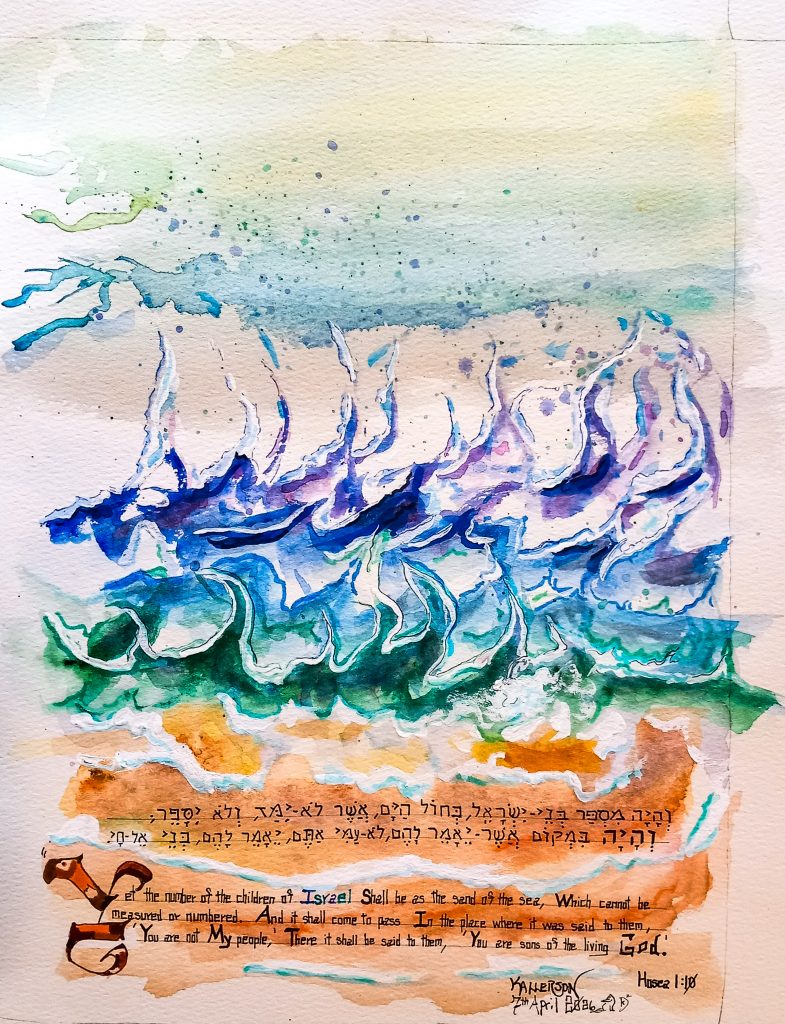 וְהָיָה מִסְפַּר בְּנֵי-יִשְׂרָאֵל, כְּחוֹל הַיָּם, אֲשֶׁר לֹא-יִמַּד, וְלֹא יִסָּפֵר,
וְהָיָה בִּמְקוֹם אֲשֶׁר-יֵאָמֵר לָהֶם, לֹא-עַמִּי אַתֶּם, יֵאָמֵר לָהֶם, בְּנֵי אֵל-חָי
Yet the number of the children of Israel Shall be as the sand of the sea, Which cannot be
measured or numbered. And it shall come to pass In the place where it was said to them,
'You are not My people,' There it shall be said to them, 'You are sons of the living God.'
Hosea 1:10
KALLERSON
7th April